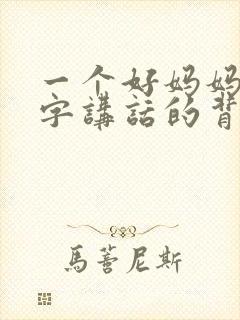 一个好妈妈
字講話的背
馬蓍尼斯